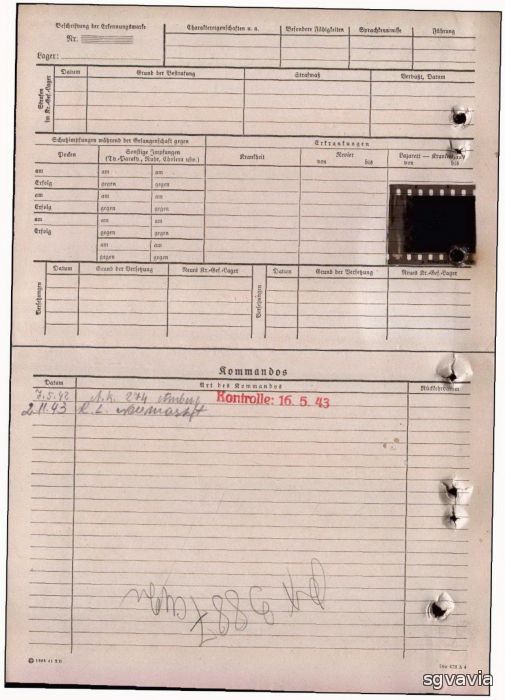 Beschriftung der Erkennungsmarke
Nr.
Lager:
Charaktereigenschaften u. a.
Besondere Fähigkeiten
Sprachkenntnisse
Führung
Strafen im Kr.-Gef.-Lager
Datum
Grund der Bestrafung
Strafmaß
Verbüßt, Datum
Schutzimpfungen während der Gefangenschaft gegen
Erkrankungen
Pocken
Sonstige Impfungen
(Ty.-Paraty., Ruhr, Cholera usw.)
Krankheit
Revier
von bis
Lazarett —
von bis
am am am
Erfolg gegen gegen
am am am
Erfolg gegen gegen
am am am
Erfolg gegen gegen
am am
gegen gegen
Versetzungen
Datum
Grund der Versetzung
Neues Kr.-Gef.-Lager
Versetzungen
Datum
Grund der Versetzung
Neues Kr.-Gef.-Lager
Kommandos
Datum
Art des Kommandos
7.5.42 A.K. 274
Kontrolle: 16. 5. 43
2.11.43
sgvavia